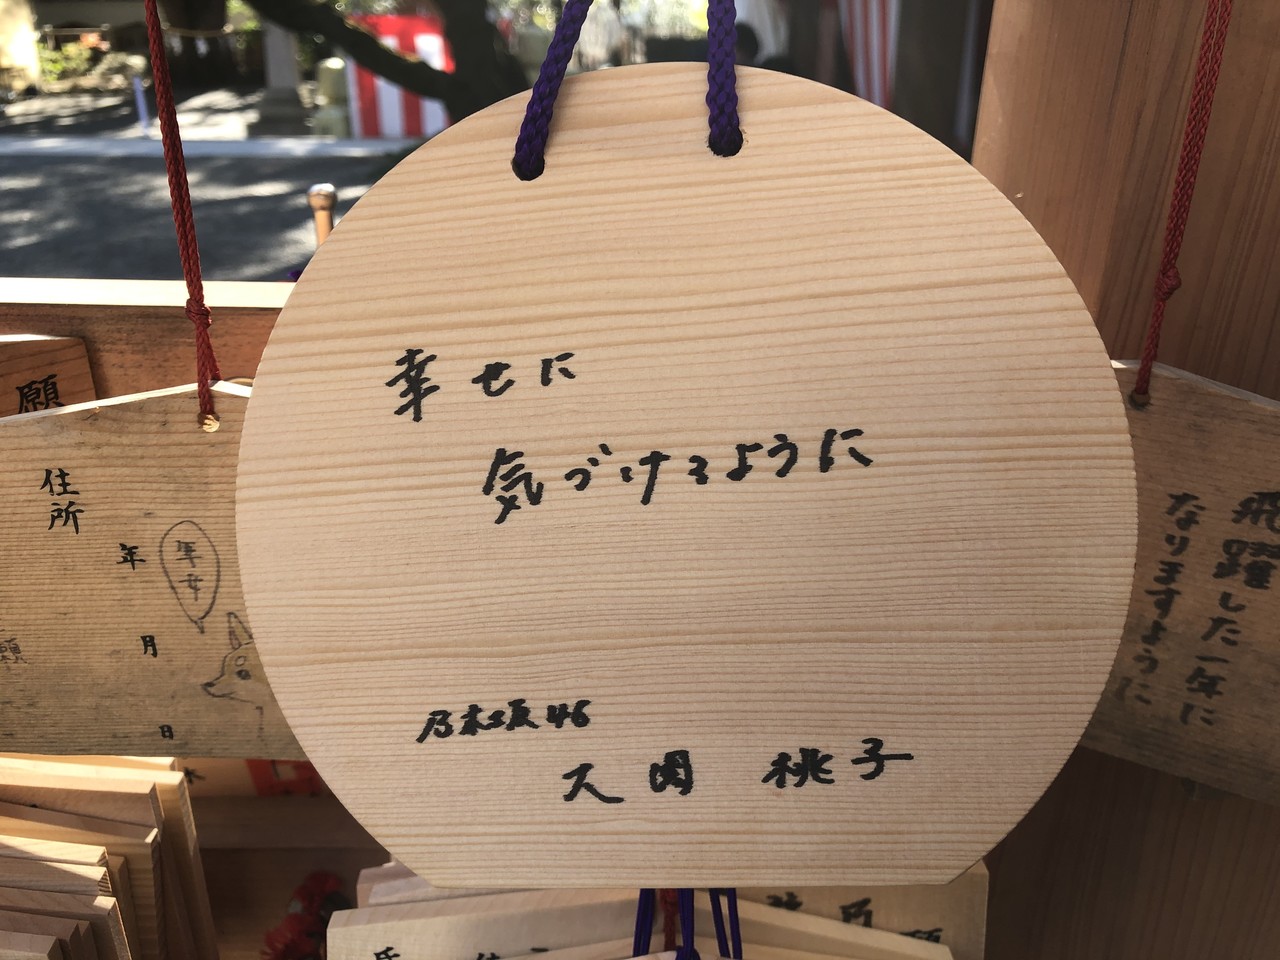 幸せに
気づけるように
乃木坂46
大園 桃子
願
住所
年
年女
月
日
飛躍した一年に
なりますように
願